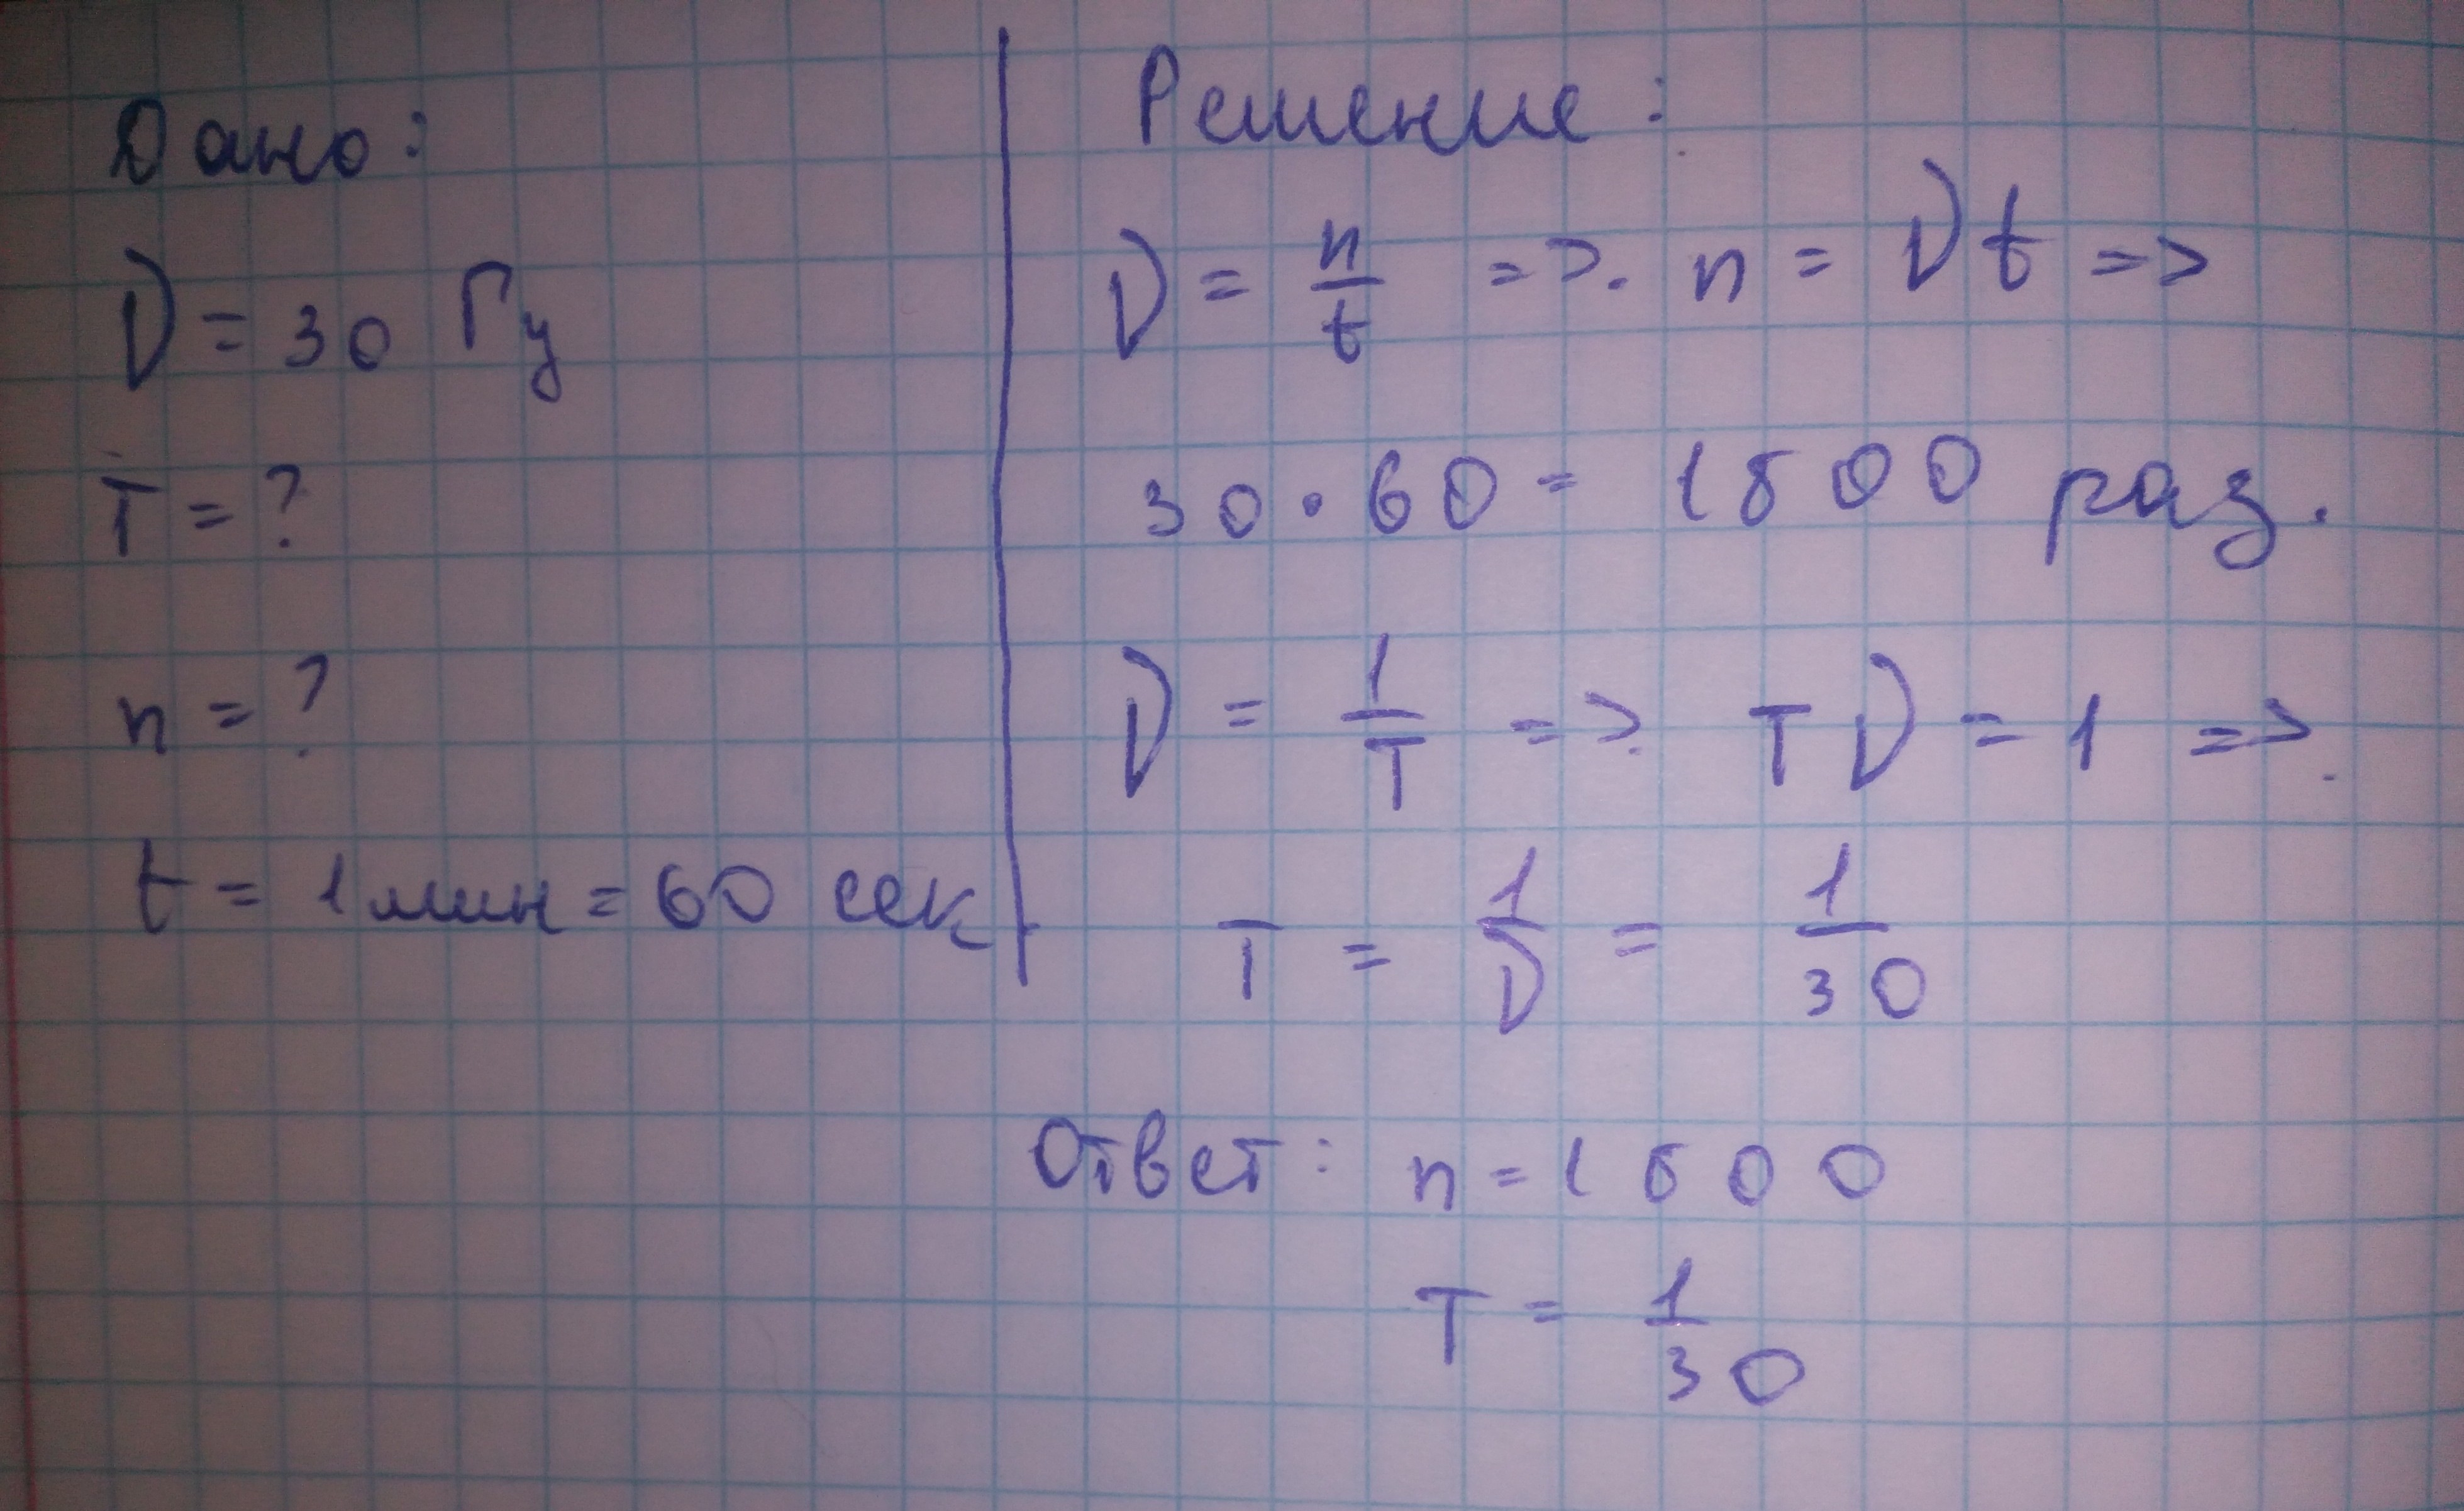 Дано:
ν = 30 Гц
T = ?
n = ?
t = 1 мин = 60 сек
Решение:
ν = n/t => n = νt =>
30 · 60 = 1800 раз.
ν = 1/T => Tν = 1 =>
T = 1/ν = 1/30
Ответ: n = 1800
T = 1/30